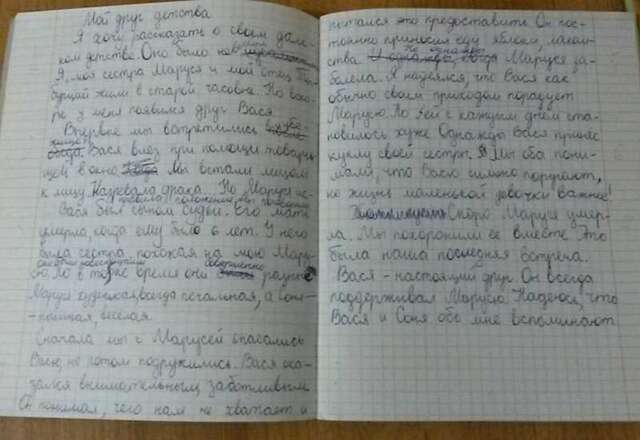 Мой друг детства
Я хочу рассказать о своем дале-
ком детстве. Оно было не
Я, моя сестра Маруся и мой отец Ты-
бурций жили в старой часовне. Но вско-
ре у меня появился друг Вася.
Впервые мы встретились в убе-
жище
Вася влез при помощи товари-
щей в окно Мы встали лицом
к лицу. Назревала драка. Но Маруся
Вася был сыном судьи. Его мать
умерла, когда ему было 6 лет. У него
была сестра, похожая на мою Мару-
сю. Но в тоже время они совершенно разные
Маруся худенькая, всегда печальная, а Соня-
-полная, веселая.
Сначала мы с Марусей опасались
Васю, но потом подружились. Вася ока-
зался внимательным, заботливым
Он понимал, чего нам не хватает и
пытался это предоставить. Он пос-
тоянно приносил еду яблоки, лаком-
ства. Но однажды Маруся за-
болела. Я надеялся, что Вася как
обычно своим приходом порадует
Марусю. Но ей с каждым днем ста-
новилось хуже Однажды Вася принес
куклу своей сестры. Мы оба пони-
мали, что Васю сильно поругают,
но жизнь маленькой девочки важнее!
Скоро Маруся умер-
ла. Мы похоронили ее вместе. Это
была наша последняя встреча.
Вася - настоящий друг. Он всегда
поддерживал Марусю. Надеюсь, что
Вася и Соня обо мне вспоминают